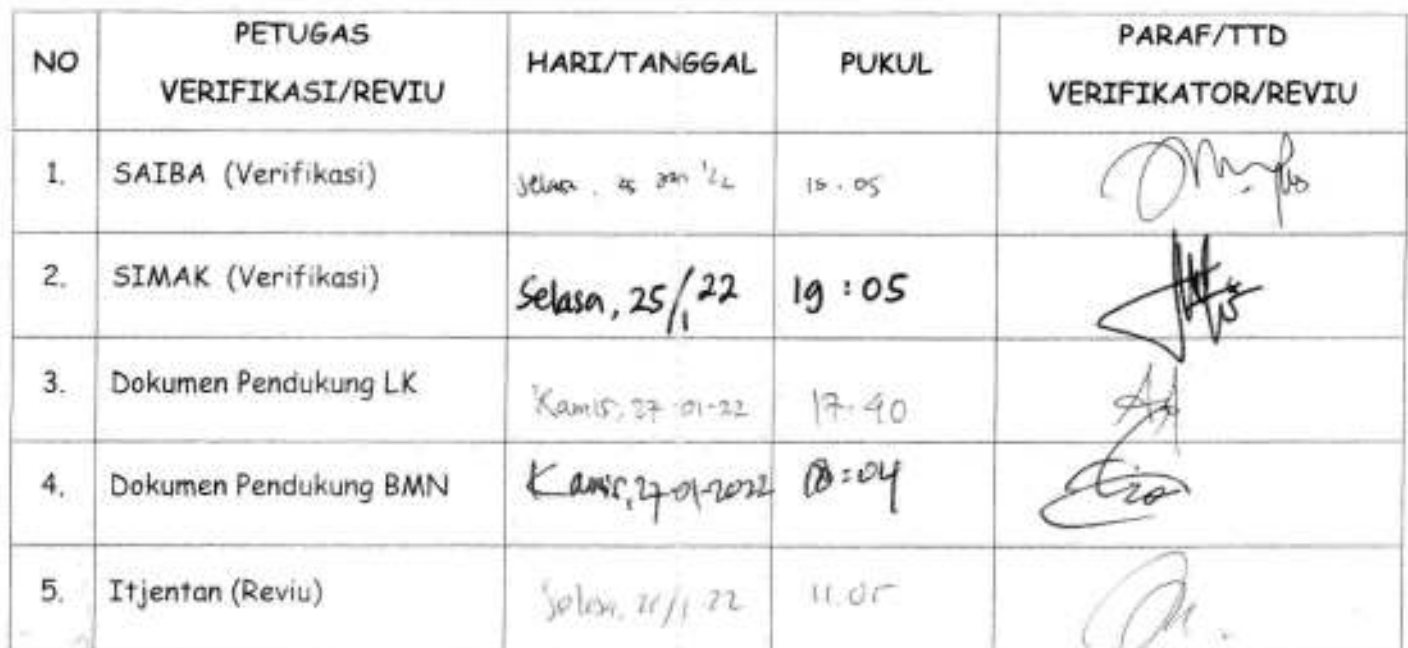 NO PETUGAS VERIFIKASI/REVIU HARI/TANGGAL PUKUL PARAF/TTD VERIFIKATOR/REVIU
1. SAIBA (Verifikasi) Selasa, 25 Jan
2. SIMAK (Verifikasi) Selasa, 25/1 22 19:05
3. Dokumen Pendukung LK Kamis, 27-01-22 17.40
4. Dokumen Pendukung BMN Kamis, 27-01-2022 18:04
5. Itjentan (Reviu) Selasa, 22 11.05